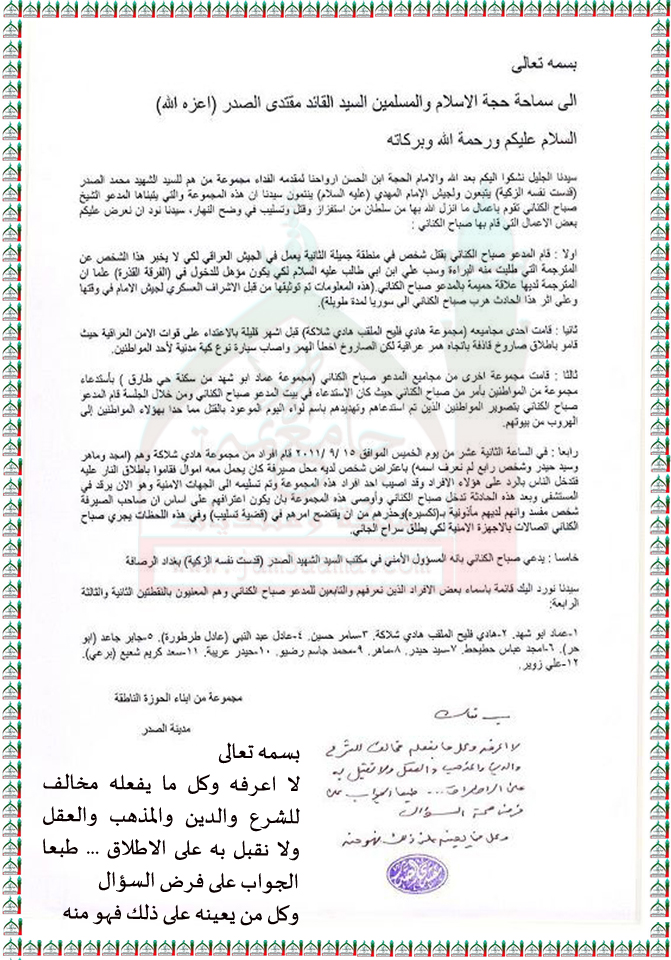 بسمه تعالى
الى سماحة حجة الاسلام والمسلمين السيد القائد مقتدى الصدر (اعزه الله)
السلام عليكم ورحمة الله وبركاته
سيدنا الجليل نشكوا اليكم بعد الله والامام الحجة ابن الحسن ارواحنا لمقدمه الفداء مجموعة من هم للسيد الشهيد محمد الصدر
(قدست نفسه الزكية) يتبعون ولجيش الإمام المهدي (عليه السلام) ينتمون سيدنا ان هذه المجموعة والتي يتبناها المدعو الشيخ
صباح الكناني تقوم باعمال ما انزل الله بها من سلطان من استفزاز وقتل وتسليب في وضح النهار، سيدنا نود ان نعرض عليكم
بعض الاعمال التي قام بها صباح الكناني :
اولا : قام المدعو صباح الكناني بقتل شخص في منطقة جميلة الثانية يعمل في الجيش العراقي لكي لا يخبر هذا الشخص عن
المترجمة التي طلبت منه البراءة وسب علي ابن ابي طالب عليه السلام لكي يكون مؤهل للدخول في (الفرقة القذرة) علما ان
المترجمة لديها علاقة حميمة بالمدعو صباح الكناني.(هذه المعلومات تم توثيقها من قبل الاشراف العسكري لجيش الامام في وقتها
وعلى اثر هذا الحادث هرب صباح الكناني الى سوريا لمدة طويلة).
ثانيا : قامت احدى مجاميعه (مجموعة هادي فليح الملقب هادي شلاكة) قبل اشهر قليلة بالاعتداء على قوات الامن العراقية حيث
قامو باطلاق صاروخ قاذفة باتجاه همر عراقية لكن الصاروخ اخطأ الهمر واصاب سيارة نوع كية مدنية لأحد المواطنين.
ثالثا : قامت مجموعة اخرى من مجاميع المدعو صباح الكناني (مجموعة عماد ابو شهد من سكنة حي طارق ) بأستدعاء
مجموعة من المواطنين بأمر من صباح الكناني حيث كان الاستدعاء في بيت المدعو صباح الكناني ومن خلال الجلسة قام المدعو
صباح الكناني بتصوير المواطنين الذين تم استدعاهم وتهديدهم باسم لواء اليوم الموعود بالقتل مما حدا بهولاء المواطنين إلى
الهروب من بيوتهم.
رابعا : في الساعة الثانية عشر من يوم الخميس الموافق ١٥ /٩ /٢٠١١ قام افراد من مجموعة هادي شلاكة وهم (امجد وماهر
وسيد حيدر وشخص رابع لم نعرف اسمه) باعتراض شخص لديه محل صيرفة كان يحمل معه اموال فقاموا باطلاق النار عليه
فتدخل الناس بالرد على هؤلاء الافراد وقد اصيب احد افراد هذه المجموعة وتم تسليمه الى الجهات الامنية وهو الان يرقد في
المستشفى وبعد هذه الحادثة تدخل صباح الكناني وأوصى هذه المجموعة بان يكون اعترافهم على اساس ان صاحب الصيرفة
شخص مفسد وانهم لديهم مأذونية بـ(تكسيره)وحذرهم من ان يفتضح امرهم في (قضية تسليب) وفي هذه اللحظات يجري صباح
الكناني اتصالات بالاجهزة الامنية لكي يطلق سراح الجاني.
خامسا : يدعي صباح الكناني بانه المسؤول الأمني في مكتب السيد الشهيد الصدر (قدست نفسه الزكية) بغداد الرصافة
سيدنا نورد اليك قائمة باسماء بعض الافراد الذين نعرفهم والتابعين للمدعو صباح الكناني وهم المعنيون بالنقطتين الثانية والثالثة
الرابعة:
١-عماد ابو شهد. ٢-هادي فليح الملقب هادي شلاكة. ٣-سامر حسين. ٤-عادل عبد النبي (عادل طرطورة). ٥-جابر جاعد (ابو
حر). ٦-امجد عباس حطيحط. ٧-سيد حيدر. ٨-ماهر. ٩-محمد جاسم رضيو. ١٠-حيدر عريبة. ١١-سعد كريم شعيع (برعي).
١٢-علي زوير.
مجموعة من ابناء الحوزة الناطقة
مدينة الصدر
بسمه تعالى
لا اعرفه وكل ما يفعله مخالف للشرع
والدين والمذهب والعقل ولا نقبل به
على الاطلاق ... طبعا الجواب على
فرض صحة السؤال
وكل من يعينه على ذلك فهو منه
بسمه تعالى
لا اعرفه وكل ما يفعله مخالف
للشرع والدين والمذهب والعقل
ولا نقبل به على الاطلاق ... طبعا
الجواب على فرض السؤال
وكل من يعينه على ذلك فهو منه